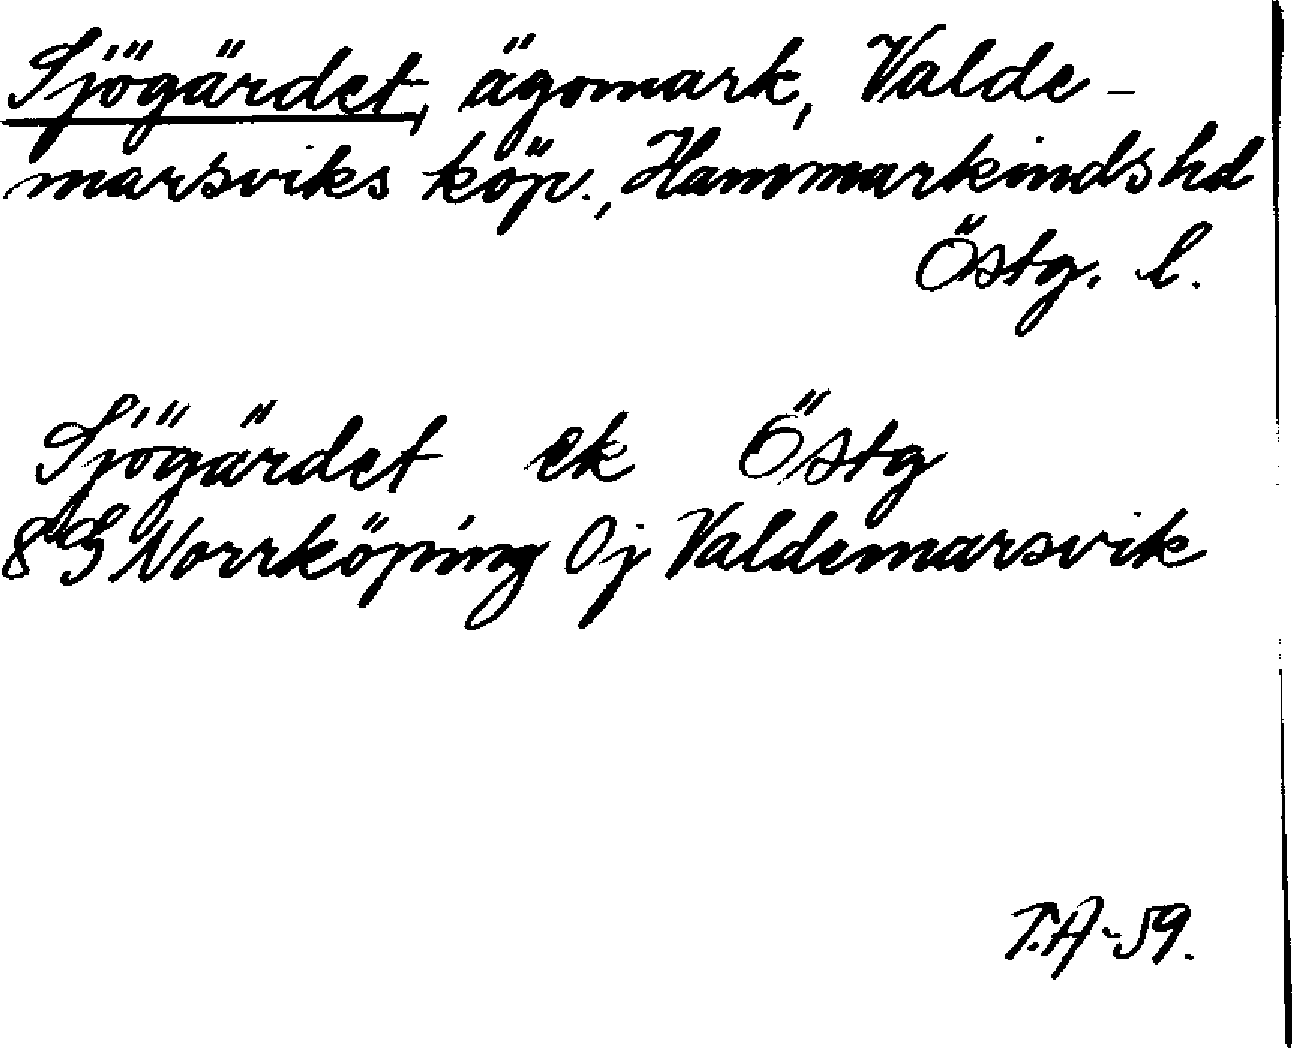 Sjögärdet, ägomark, Valde-
marsviks köp., Hammarkinds hd
Östg. l.
Sjögärdet ek Östg
8G Norrköping 0j Valdemarsvik
T.A-59.